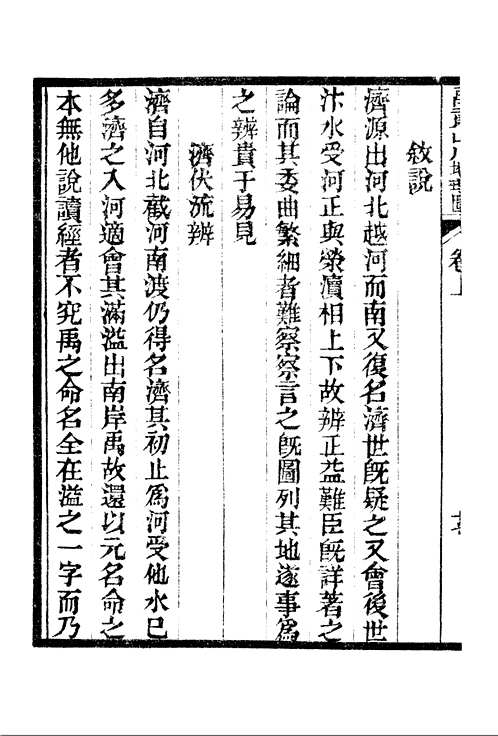 禹貢山川地理圖 卷上
敘說
濟源出河北越河而南又復名濟世旣疑之又會後世
汴水受河正與滎瀆相上下故辨正益難臣旣詳著之
論而其委曲繁細者難察察言之旣圖列其地遂事爲
之辨貴于易見
濟伏流辨
濟自河北截河南渡仍得名濟其初止爲河受他水已
多濟之入河適會其滿溢出南岸禹故還以元名命之
本無他說讀經者不究禹之命名全在溢之一字而乃